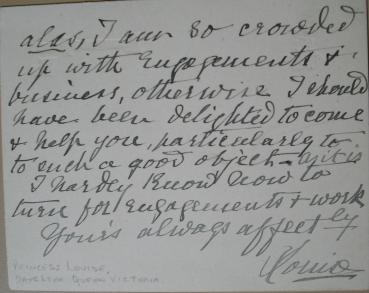 alas, I am so crowded
up with Engagements &
business, otherwise I should
have been delighted to come
& help you, particularly to
to such a good object - as it is
I hardly know how to
turn for Engagements & work
Yours always affectly
Louise
PRINCESS LOUISE,
DAUGHTER QUEEN VICTORIA.